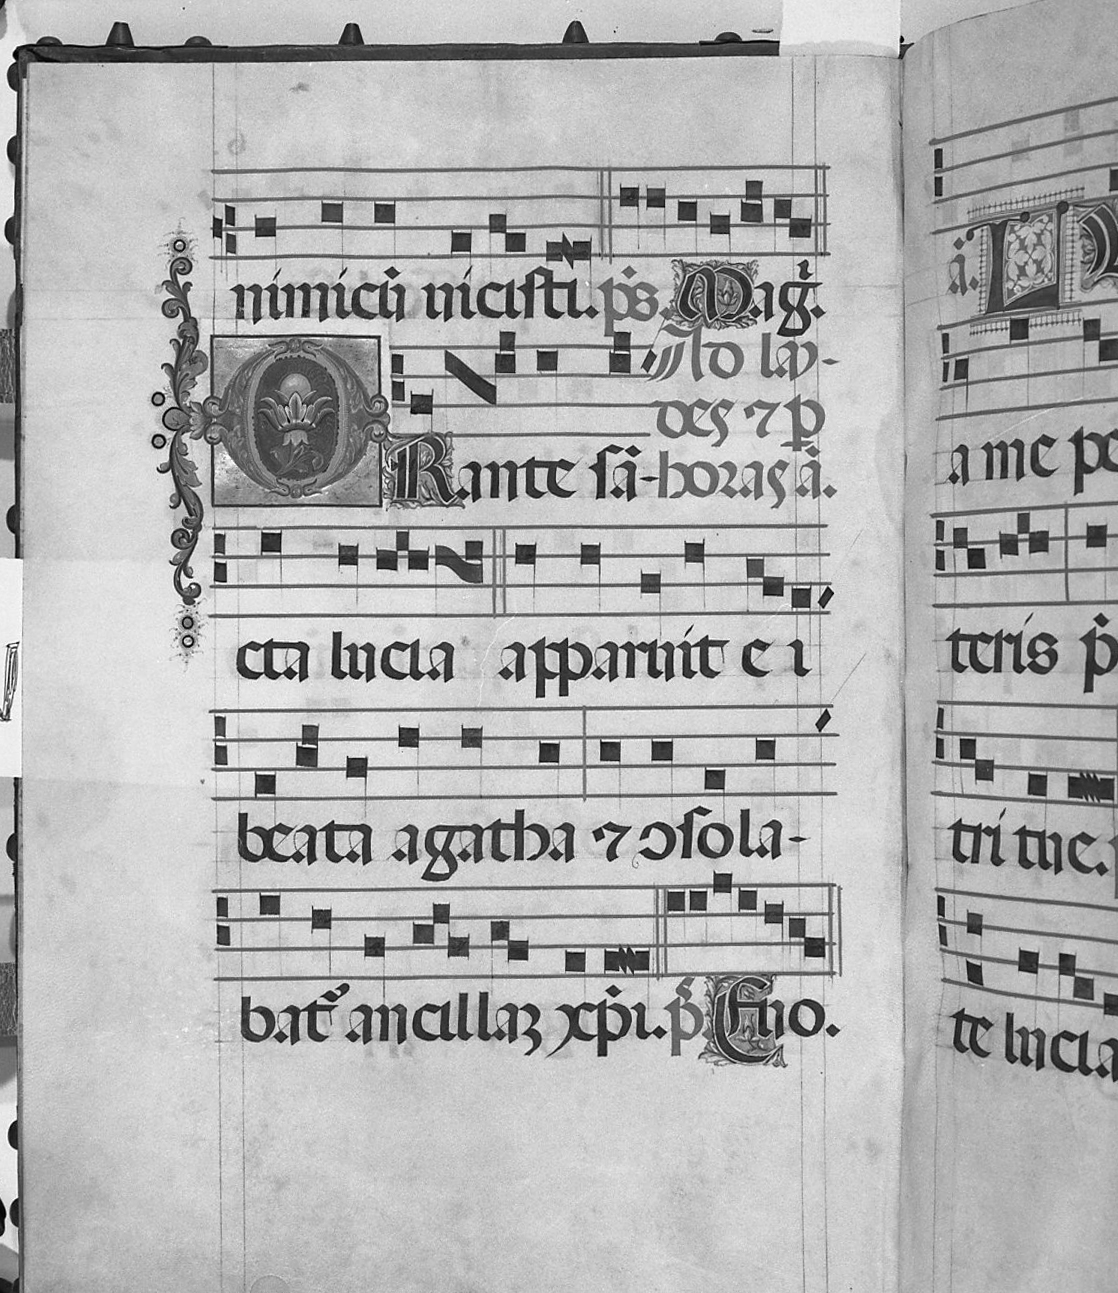 nimicū uicisti. ps. Mag̃.
Ad lau-
des ⁊ p
ORante sā- horas ā.
cta lucia apparuit e i
beata agatha ⁊ ↄsola-
bat᷑ ancillaꝝ xp̄i. p̄s Euo.
ā. L
a me pe
teris p̄
tri tue.
te lucia